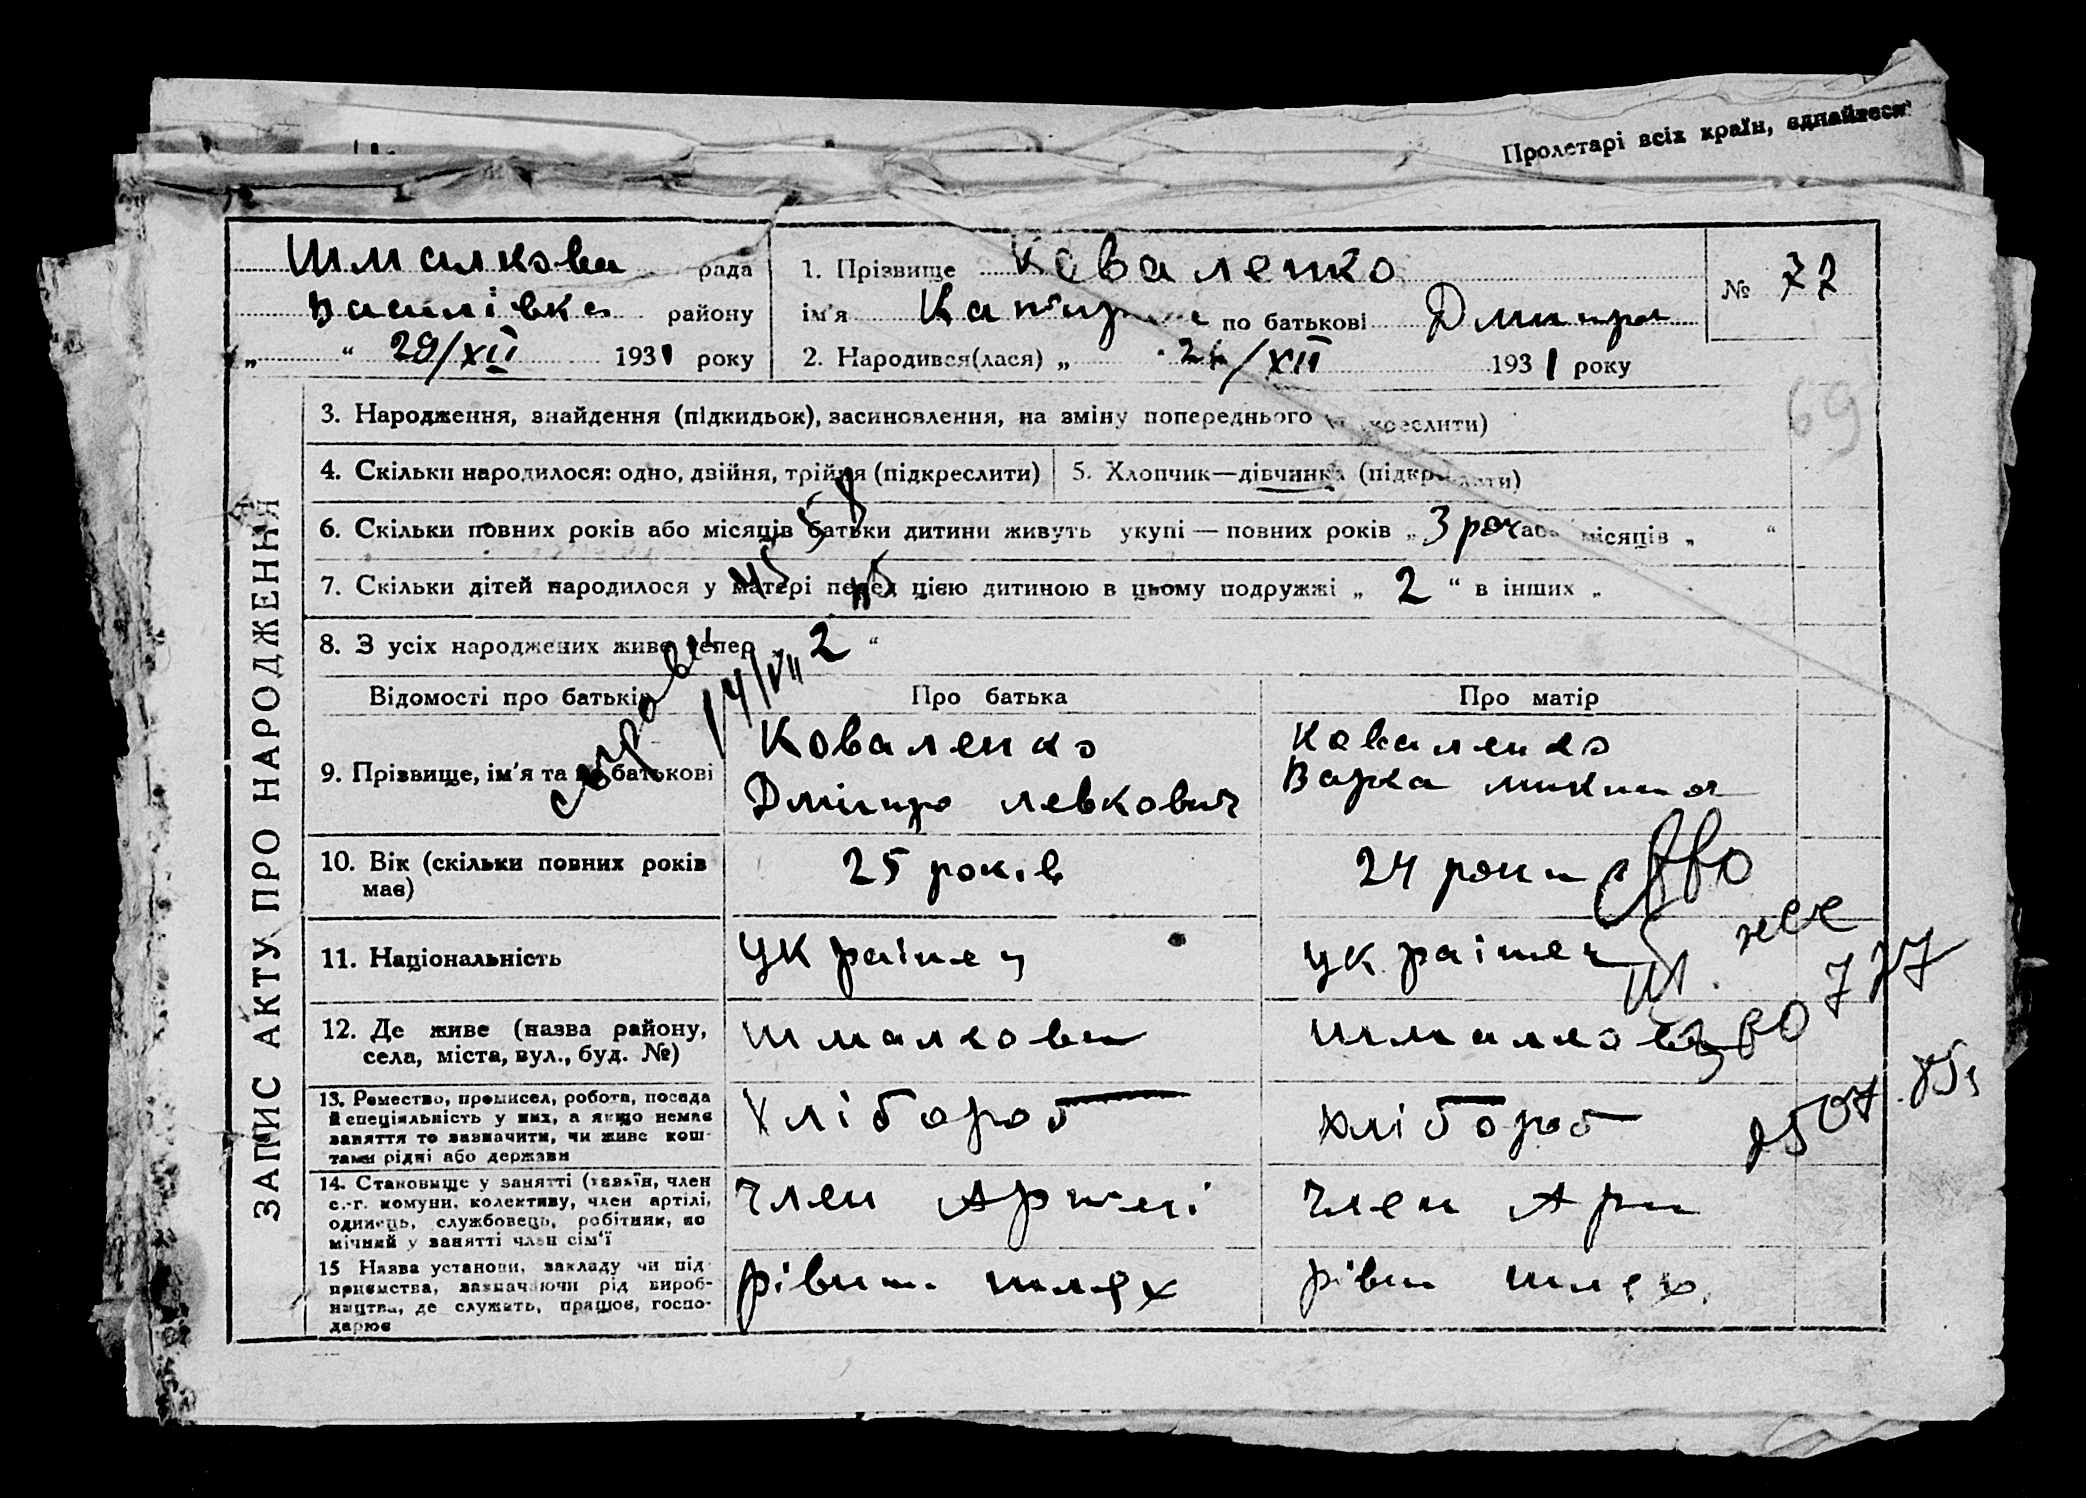 Пролетарі всіх країн, єднайтеся
Шмалкова рада
Василівка району
„ “ 29/XII 1931 року
1. Прізвище Коваленко
ім'я по батькові Дмитро
2. Народився(лася) „ /XII 1931 року
№ 77
69
ЗАПИС АКТУ ПРО НАРОДЖЕННЯ
3. Народження, знайдення (підкидьок), засиновлення, на зміну попереднього
4. Скільки народилося: одно, двійня, трійня (підкреслити)
5. Хлопчик—дівчинка (підкреслити)
6. Скільки повних років або місяців батьки дитини живуть укупі — повних років „ 3 роч або місяців „ “
7. Скільки дітей народилося у матері перед цією дитиною в цьому подружжі „ 2 “ в інших „
8. З усіх народжених живе тепер „ 2 “
14/VII
Відомості про батьків
Про батька
Про матір
9. Прізвище, ім'я та по батькові
Коваленко
Дмитро Левкович
Коваленко
Варка
10. Вік (скільки повних років
має)
25 років
24 роки
11. Національність
Українец
україн
12. Де живе (назва району,
села, міста, вул., буд. №)
Шмалкова
Шмалкова
13. Ремество, промисел, робота, посада
й спеціяльність у них, а якщо немає
заняття то зазначити, чи живе кош-
тами рідні або держави
Хлібороб
Хлібороб
14. Становище у занятті (хазяїн, член
с.-г. комуни, колективу, член артілі,
одинець, службовець, робітник, по
мічний у занятті член сім'ї
член Артілі
член Арт
15 Назва установи, закладу чи під-
приємства, зазначаючи рід вироб-
ництва, де служить, працює, госпо-
дарює
рівни шлях
рівн шлях.